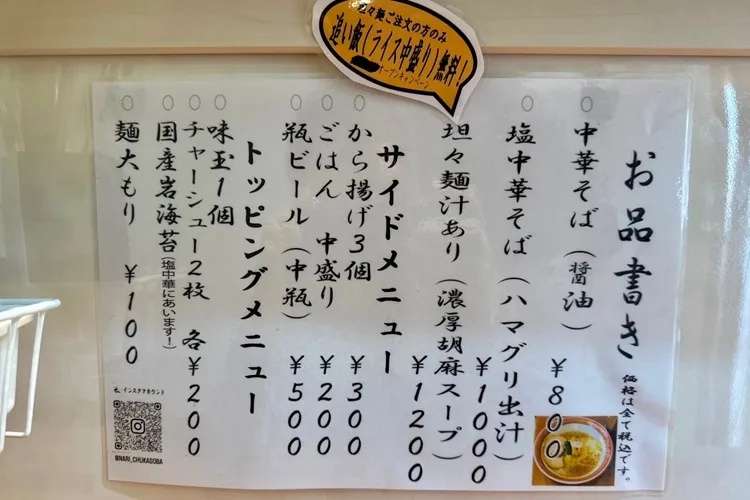 坦々麺ご注文の方のみ
追い飯(ライス中盛り)無料!
オープンキャンペーン
お品書き
価格は全て税込です。
〇中華そば(醤油) ¥800
〇塩中華そば(ハマグリ出汁) ¥1000
坦々麺汁あり(濃厚胡麻スープ) ¥1200
サイドメニュー
〇から揚げ3個 ¥300
〇ごはん 中盛り ¥200
〇瓶ビール(中瓶) ¥500
トッピングメニュー
〇味玉1個
〇チャーシュー2枚 各¥200
〇国産岩海苔(塩中華にあいます!)
〇麺大もり ¥100
インスタアカウント
@NARI_CHUKASOBA